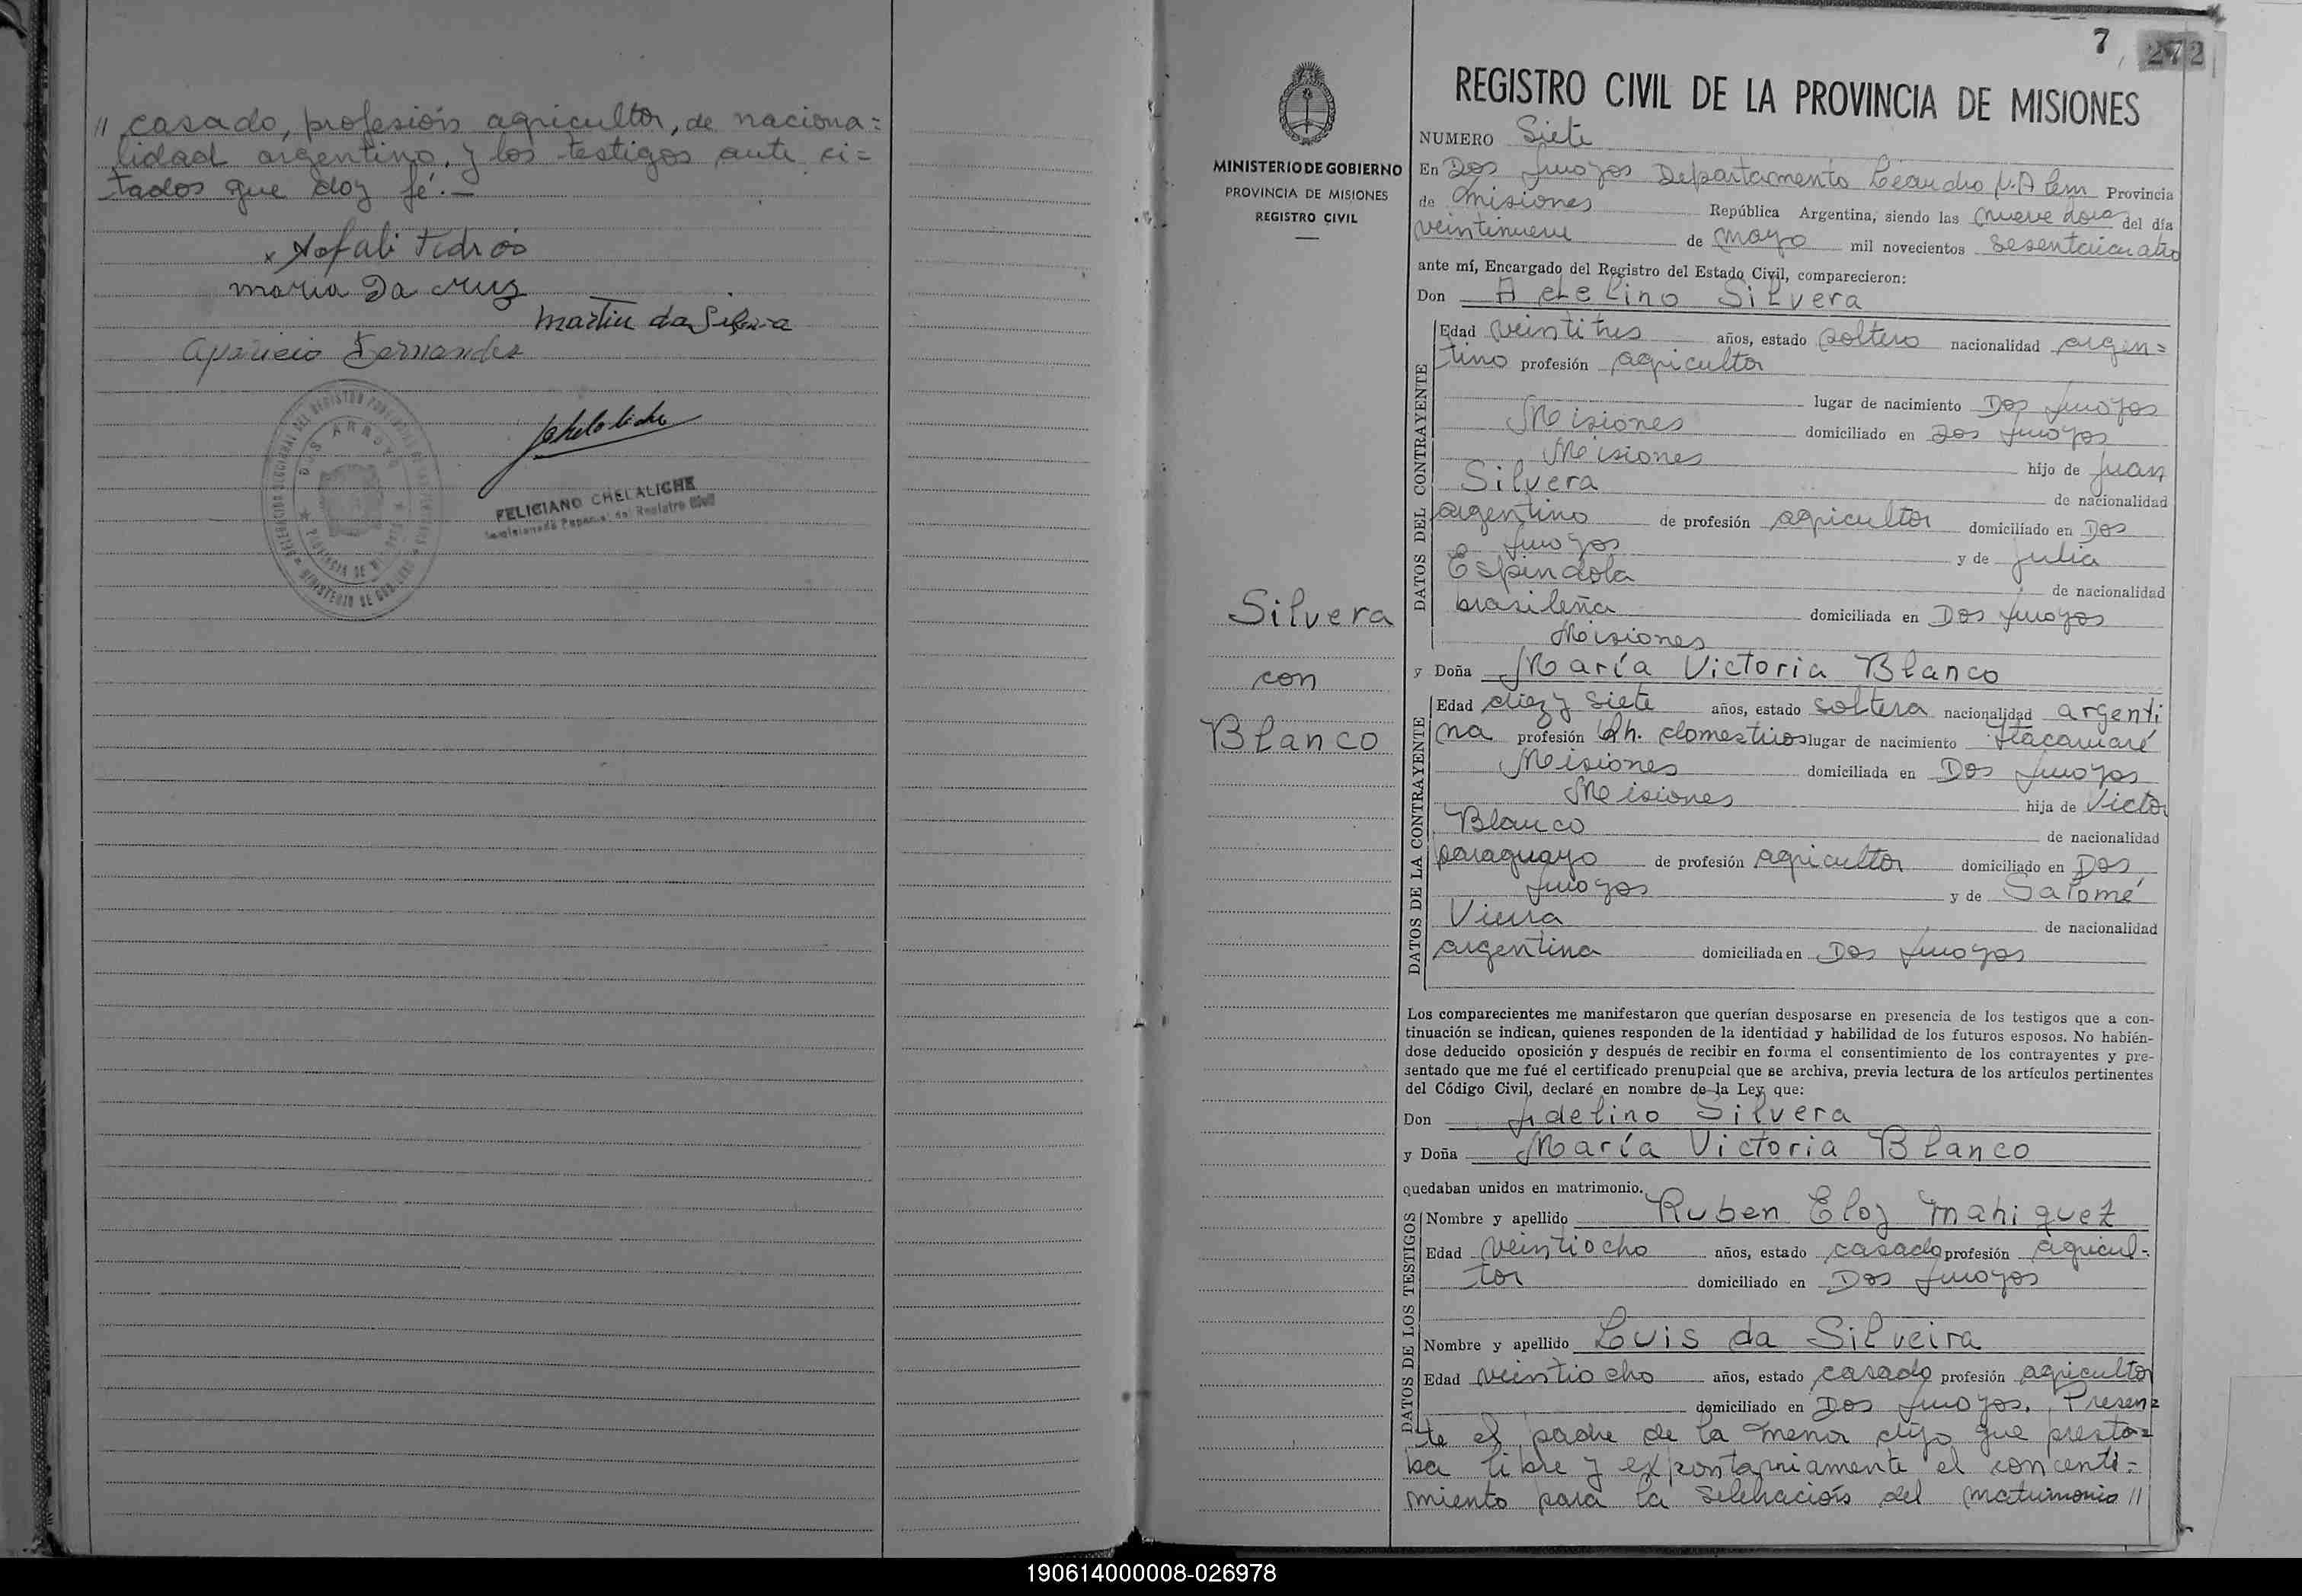 // casado, profesión agricultor, de naciona=
lidad argentino, y los testigos ante ci=
tados que doy fé.—
x Nofali Pedroo
maria Da cruz
Martin da Silveira
aparicio Fernandes
DOS ARROYOS
FELICIANO CHELALICHE
7
272
REGISTRO CIVIL DE LA PROVINCIA DE MISIONES
MINISTERIO DE GOBIERNO
PROVINCIA DE MISIONES
REGISTRO CIVIL
Silvera
con
Blanco
NUMERO Siete
En Dos Arroyos Departamento Leandro N. Alem Provincia
de Misiones República Argentina, siendo las nueve horas del día
veintinueve de mayo mil novecientos sesentaicuatro
ante mí, Encargado del Registro del Estado Civil, comparecieron:
Don Adelino Silvera
DATOS DEL CONTRAYENTE
Edad veintitres años, estado soltero nacionalidad argen=
tino profesión agricultor
lugar de nacimiento Dos Arroyos
Misiones domiciliado en Dos Arroyos
Misiones hijo de Juan
Silvera de nacionalidad
argentino de profesión agricultor domiciliado en Dos
Arroyos y de Julia
Espindola de nacionalidad
brasileña domiciliada en Dos Arroyos
Misiones
y Doña María Victoria Blanco
DATOS DE LA CONTRAYENTE
Edad diez y siete años, estado soltera nacionalidad argenti
na profesión Qh. domesticos lugar de nacimiento Itacaruaré
Misiones domiciliada en Dos Arroyos
Misiones hija de Victor
Blanco de nacionalidad
paraguayo de profesión agricultor domiciliado en Dos
Arroyos y de Salomé
Vieira de nacionalidad
argentina domiciliada en Dos Arroyos
Los comparecientes me manifestaron que querían desposarse en presencia de los testigos que a con-
tinuación se indican, quienes responden de la identidad y habilidad de los futuros esposos. No habién-
dose deducido oposición y después de recibir en forma el consentimiento de los contrayentes y pre-
sentado que me fué el certificado prenupcial que se archiva, previa lectura de los artículos pertinentes
del Código Civil, declaré en nombre de la Ley que:
Don Adelino Silvera
y Doña María Victoria Blanco
quedaban unidos en matrimonio.
DATOS DE LOS TESTIGOS
Nombre y apellido Ruben Eloy Mahiquez
Edad veintiocho años, estado casado profesión agricul-
tor domiciliado en Dos Arroyos
Nombre y apellido Luis da Silveira
Edad veintiocho años, estado casado profesión agricultor
domiciliado en Dos Arroyos. Presen=
te el padre de la menor dijo que presta=
ba libre y expontaniamente el concenti=
miento para la selebración del matrimonio //
190614000008-026978